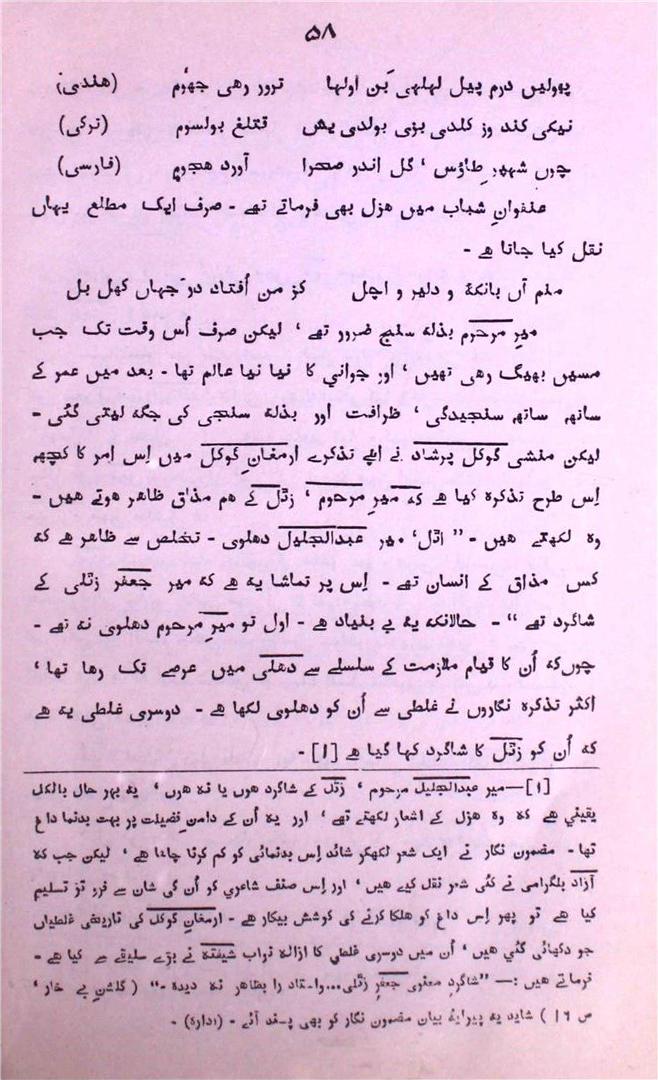 ۵۸
پھولیں درم پیل لہلہی بَن اولہا ترور رھی جھوٗم (ھندی)
نیکی کند وز کلدی بزی بولدی یش قتلغ بولسوم (ترکی)
چوں شہپرِ طاؤس ' گل اندر صحرا آورد ھجوم (فارسی)
عنفوانِ شباب میں ھزل بھی فرماتے تھے - صرف ایک مطلع یہاں
نقل کیا جاتا ھے -
منم آں بانکۂ و دلیر و اچل کز من اُفتاد دو جہاں کھل بل
میرِ مرحوم بذلہ سنج ضرور تھے ' لیکن صرف اُس وقت تک جب
مسیں بھیگ رھی تھیں ' اور جوانی کا نیا نیا عالم تھا - بعد میں عمر کے
ساتھ ساتھ سنجیدگی ' ظرافت اور بذلہ سنجی کی جگہ لیتی گئی -
لیکن منشی گوکل پرشاد نے اپنے تذکرے ارمغانِ گوکل میں اِس امر کا کچھ
اِس طرح تذکرہ کیا ھے کہ میرِ مرحوم ' زٹل کے ھم مذاق ظاھر ھوتے ھیں -
وہ لکھتے ھیں - " اٹل ' میر عبدالجلیل دھلوی - تخلص سے ظاھر ھے کہ
کس مذاق کے انسان تھے - اِس پر تماشا یہ ھے کہ میر جعفر زٹلی کے
شاگرد تھے " - حالانکہ یہ بے بنیاد ھے - اول تو میرِ مرحوم دھلوی نہ تھے -
چوں‌کہ اُن کا قیام ملازمت کے سلسلے سے دھلی میں عرصے تک رھا تھا '
اکثر تذکرہ نگاروں نے غلطی سے اُن کو دھلوی لکھا ھے - دوسری غلطی یہ ھے
کہ اُن کو زٹل کا شاگرد کہا گیا ھے [۱] -
[۱]—میر عبدالجلیل مرحوم ' زٹل کے شاگرد ھوں یا نہ ھوں ' یہ بہر حال بالکل
یقینی ھے کہ وہ ھزل کے اشعار لکھتے تھے ' اور یہ اُن کے دامنِ فضیلت پر بہت بدنما داغ
تھا - مضمون نگار نے ایک شعر لکھکر شائد اِس بدنمائی کو کم کرنا چاھا ھے ' لیکن جب کہ
آزاد بلگرامی نے کئی شعر نقل کیے ھیں ' اور اِس صنف شاعری کو اُن کی شان سے فرو تر تسلیم
کیا ھے تو پھر اِس داغ کو ھلکا کرنے کی کوشش بیکار ھے - ارمغانِ گوکل کی تاریخی غلطیاں
جو دکھائی گئی ھیں ' اُن میں دوسری غلطی کا ازالہ نواب شیفتہ نے بڑے سلیقے سے کیا ھے -
فرماتے ھیں :— "شاگردِ معنوی جعفرِ زٹلی...واستاد را بظاھر نہ دیدہ -" ( گلشنِ بے خار '
ص ۱۶ ) شاید یہ پیرایۂ بیان مضمون نگار کو بھی پسند آئے - (ادارہ) -